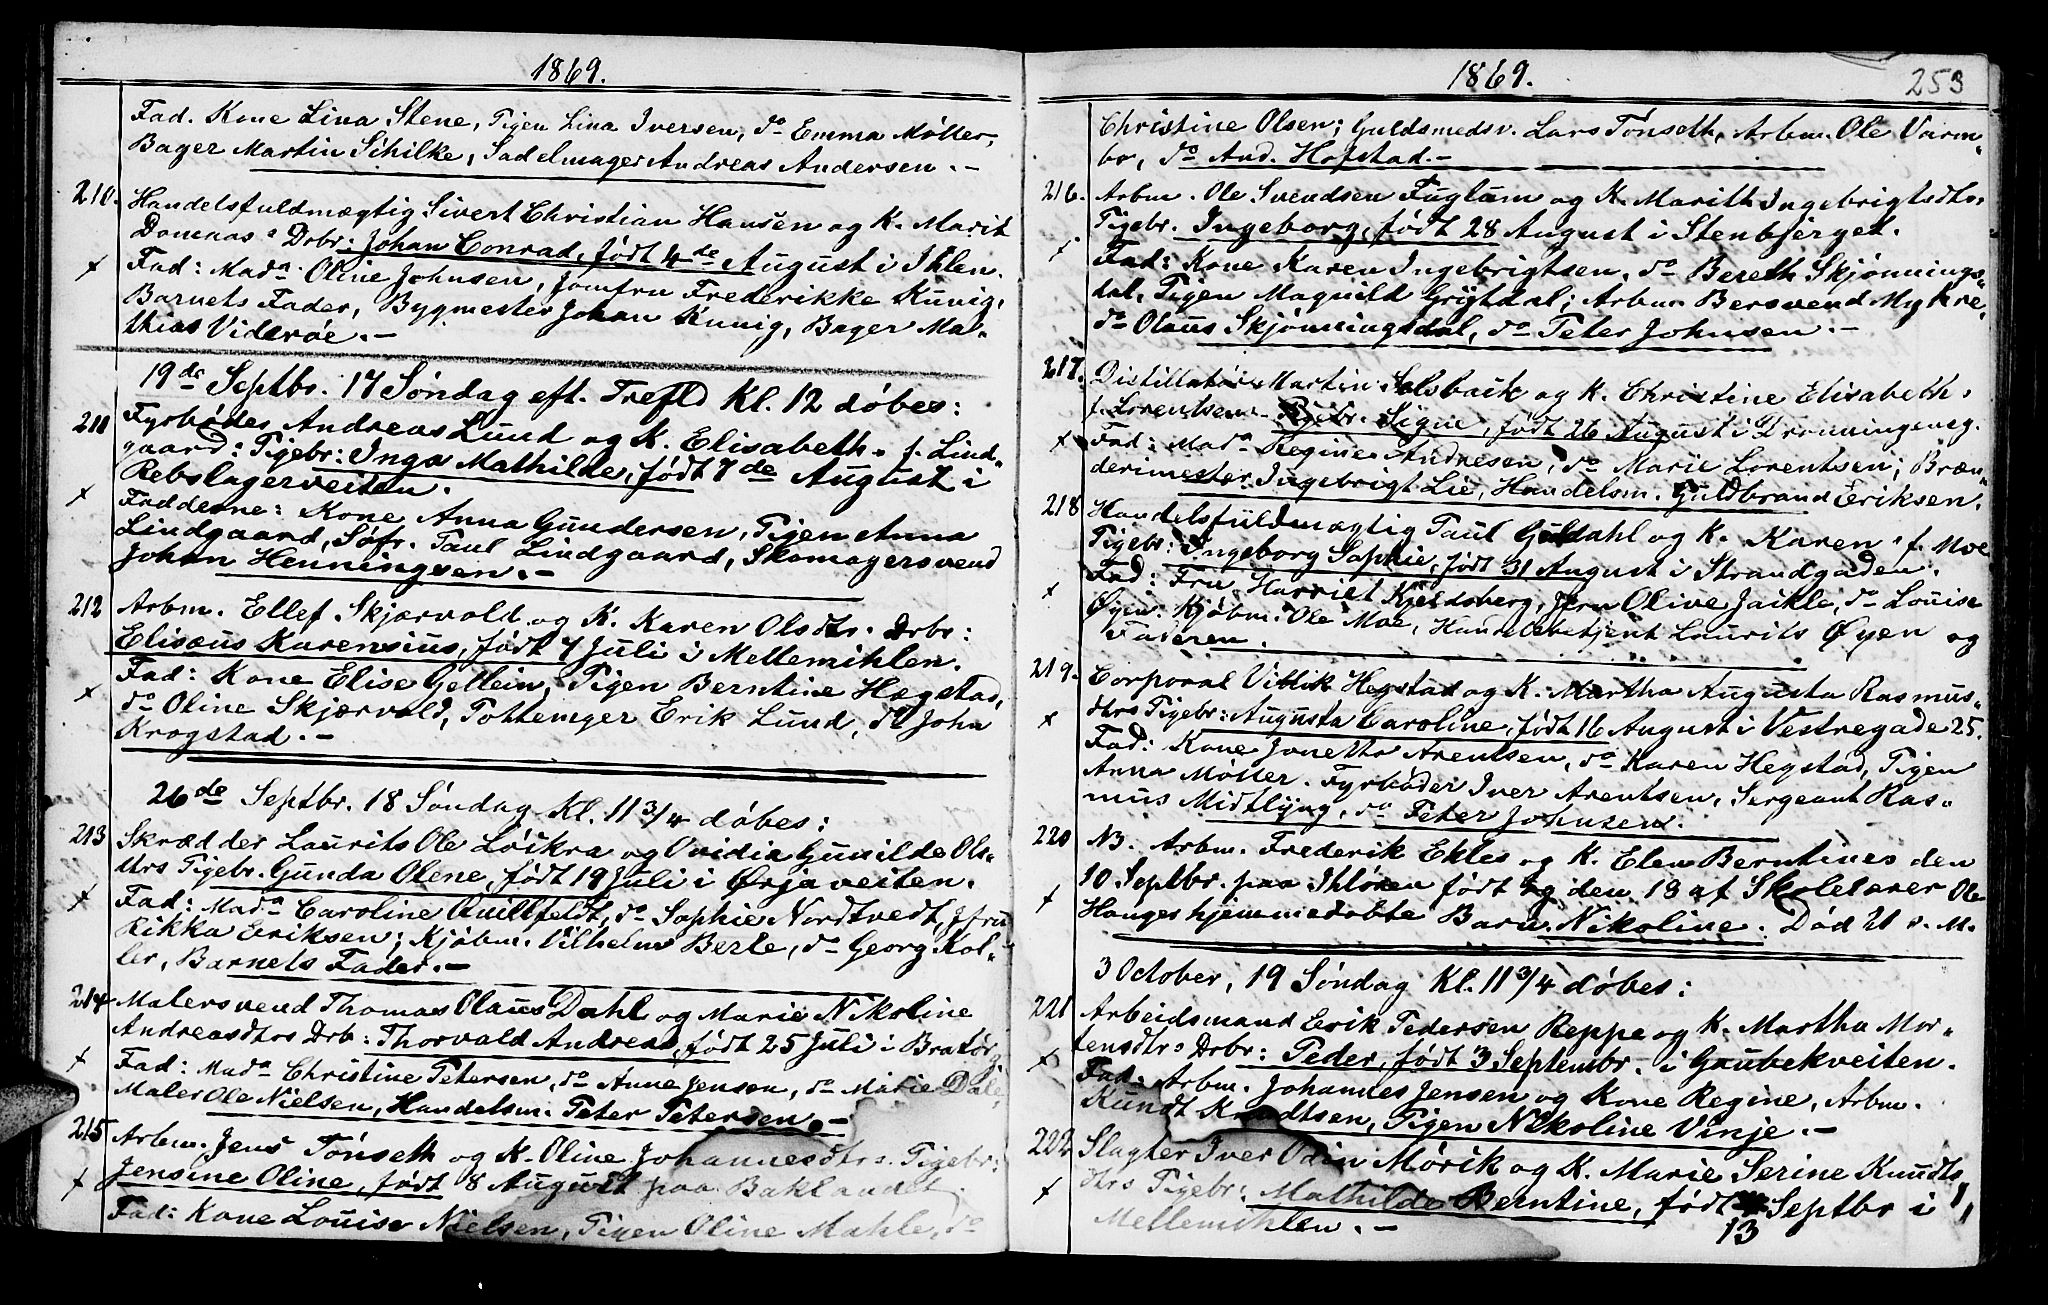 1869.
Fad. Kone Lina Stene, Tigen Lina Iversen, do Emma Møller,
Bager Martin Schilke, Sadelmager Andreas Andersen. -
210. Handelsfuldmægtig Sivert Christian Hansen og K. Marit
Domenas Drbr: Johan Conrad, født 4de August i Ihlen.
x Fad: Mada. Oline Johnsen, Jomfru Frederikke Kunig,
Barnets Fader, Bygmester Johan Kunig, Bager Ma-
thias Viderøe. -
19de Septbr. 17 Søndag eft. Trefld Kl. 12 døbes:
211 Fyrbøder Andreas Lund og K. Elisabeth f. Lind-
gaard: Pigebr: Inga Mathilde, født 7de August i
Rebslagerveiten.
x Fadderne: Kone Anna Gundersen, Tigen Anna
Lindgaard, Søfr. Paul Lindgaard, Skomagersvend
Johan Henningsen. -
212 Arbm. Ellef Skjærvold og K. Karen Olsdtr. Drbr:
Elisæus Karensius, født 7 Juli i Mellemihlen.
Fad: Kone Elise Gellein, Tigen Berntine Hægstad,
x do Oline Skjærvold, Pottemger Erik Lund, do John
Krogstad. -
26de Septbr. 18 Søndag Kl. 11 3/4 døbes:
213 Skrædder Laurits Ole Løikra og Ovidia Gunilde Ols-
dtrs Pigebr. Gunda Olene, født 19 Juli i Ørjaveiten.
x Fad: Mada Caroline Quillfeldt, do Sophie Nordtvedt, Jfru
Rikka Eriksen; Kjøbm. Vilhelm Berle, do Georg Kol-
ler, Barnets Fader. -
214 Malersvend Thomas Olaus Dahl og Marie Nikoline
Andreasdtrs Drb: Thorvald Andreas, født 25 Juli i Bratørg.
x Fad: Mada Christine Petersen, do Anne Jensen, do Marie Dale,
Maler Ole Nielsen, Handelsm. Peter Petersen. -
215 Arbm. Jens Tønseth og K. Oline Johannesdtrs. Pigebr:
x Jensine Oline, født 8 August paa Baklandet.
Fad: Kone Louise Nielsen, Pigen Oline Mahle, do
1869. 253
Christine Olsen; Guldsmedsv. Lars Tønseth, Arbm. Ole Varm-
bo, do And. Hofstad. -
216. Arbm. Ole Svendsen Fuglum og K. Marith Ingebrigtsdtrs
Pigebr. Ingeborg, født 28 August i Stenbjerget.
x Fad: Kone Karen Ingebrigtsen, do Bereth Skjønnings-
dal, Pigen Magnild Grytdal; Arbm. Bersvend Mykre-
do Olaus Skjønningsdal, do Peter Johnsen. -
217. Distillatør Martin Solsbaik og K. Christine Elisabeth
f. Lorentsen Pigebr. Signe, født 26 August i Dronningensg.
x Fad: Mada Regine Andresen, do Marie Lorentsen; Bræn-
derimester Ingebrigt Lie, Handelsm. Guldbrand Eriksen.
218 Handelsfuldmægtig Paul Guldahl og K. Karen f. Moe
Pigebr: Ingeborg Sophie, født 31 August i Strandgaden.
x Fad: Fru Harriet Kjeldsberg, Jfru Olive Jaikle, do Louise
Øyen: Kjøbm. Ole Moe, Handelsbetjent Laurits Øyen og
Faderen.
219. Corporal Villik Hegstad og K. Martha Augusta Rasmus-
x dtrs Pigebr: Augusta Caroline, født 16 August i Vestregade 25.
Fad: Kone Jonette Arentsen, do Karen Hegstad, Tigen
Anna Møller. Fyrbøder Iver Arentsen, Sergeant Ras-
mus Midtlyng, do Peter Johnsen.
220 NB. Arbm. Frederik Ekles og K. Elen Berntines den
10 Septbr. paa Ihløren født og den 18 af Skolelærer Ole
x Hauges hjemmedøbte Barn Nikoline. Død 21 s. M.
3 October, 19 Søndag Kl. 11 3/4 døbes:
221 Arbeidsmand Erik Pedersen Reppe og K. Martha Mor-
tensdtrs Drbr: Peder, født 3 Septembr. i Gaubekveiten.
x Fad: Arbm. Johannes Jensen og Kone Regine, Arbm.
Kundt Knudtsen, Pigen Nikoline Vinje. -
222 Slagter Iver Odin Mørik og K. Marie Serine Knudts
x dtrs Pigebr: Mathilde Berntine, født 13 Septbr i
Mellemihlen. -